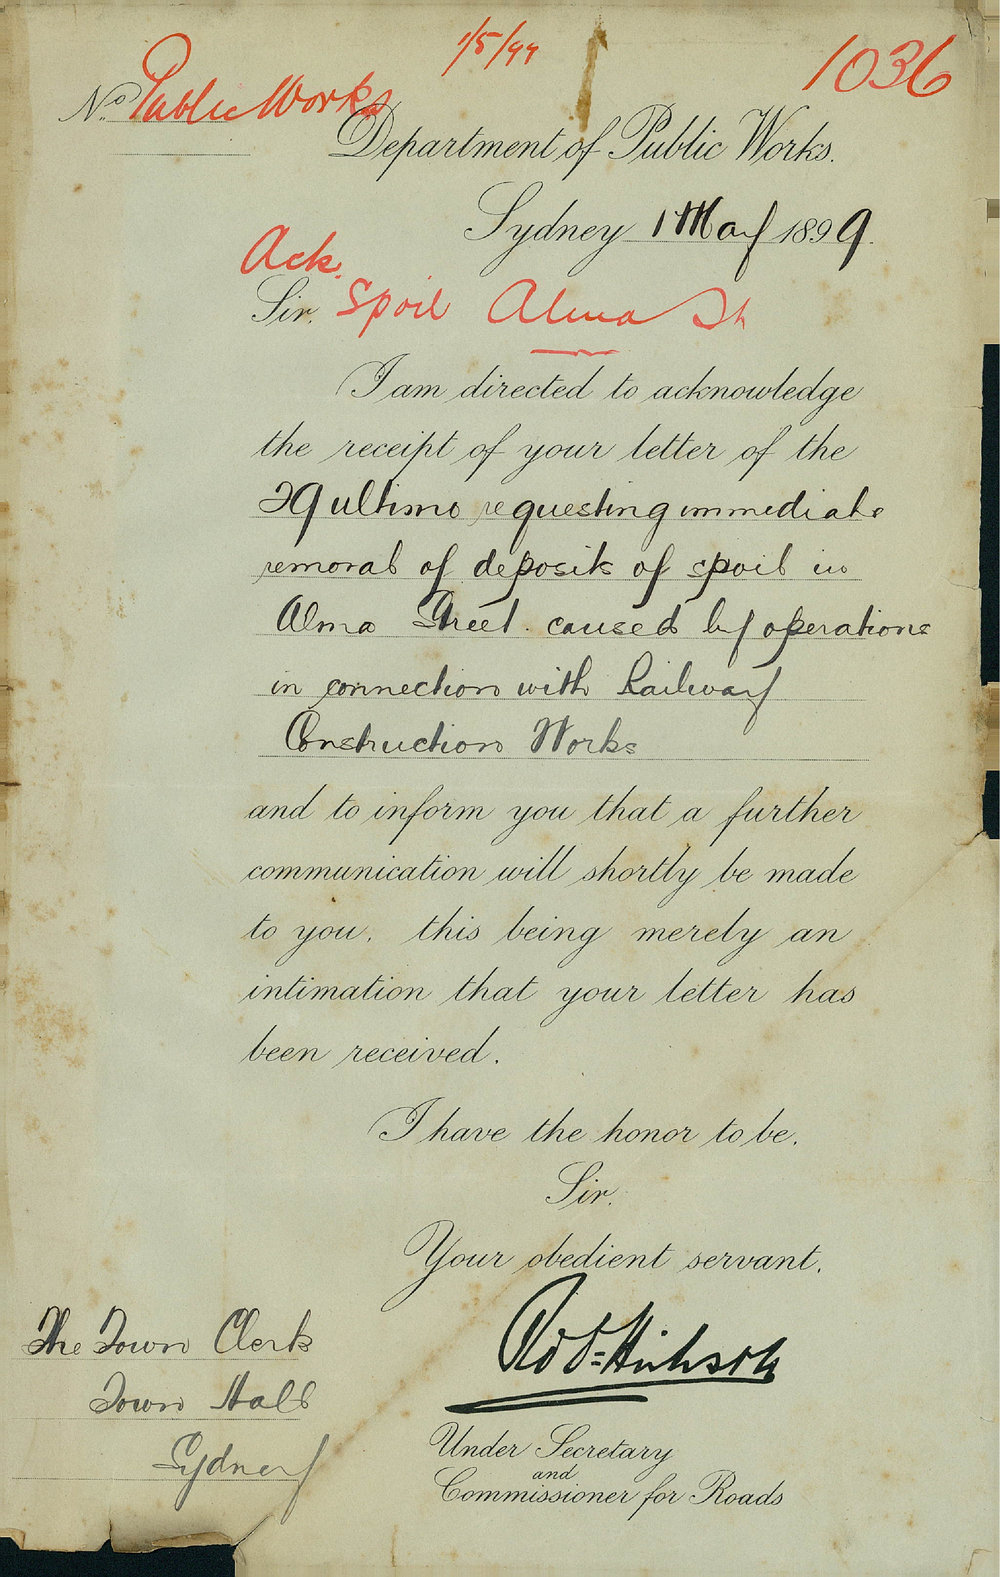 1/5/99
1036
No. Public Works
Department of Public Works.
Sydney 1 May 1899.
Ack.
Sir, Spoil Alma St
I am directed to acknowledge
the receipt of your letter of the
29 ultimo requesting immediate
removal of deposits of spoil in
Alma Street. caused by operations
in connection with Railway
Construction Works
and to inform you that a further
communication will shortly be made
to you, this being merely an
intimation that your letter has
been received.
I have the honor to be,
Sir,
Your obedient servant,
The Town Clerk
Town Hall
Sydney
Under Secretary
and
Commissioner for Roads